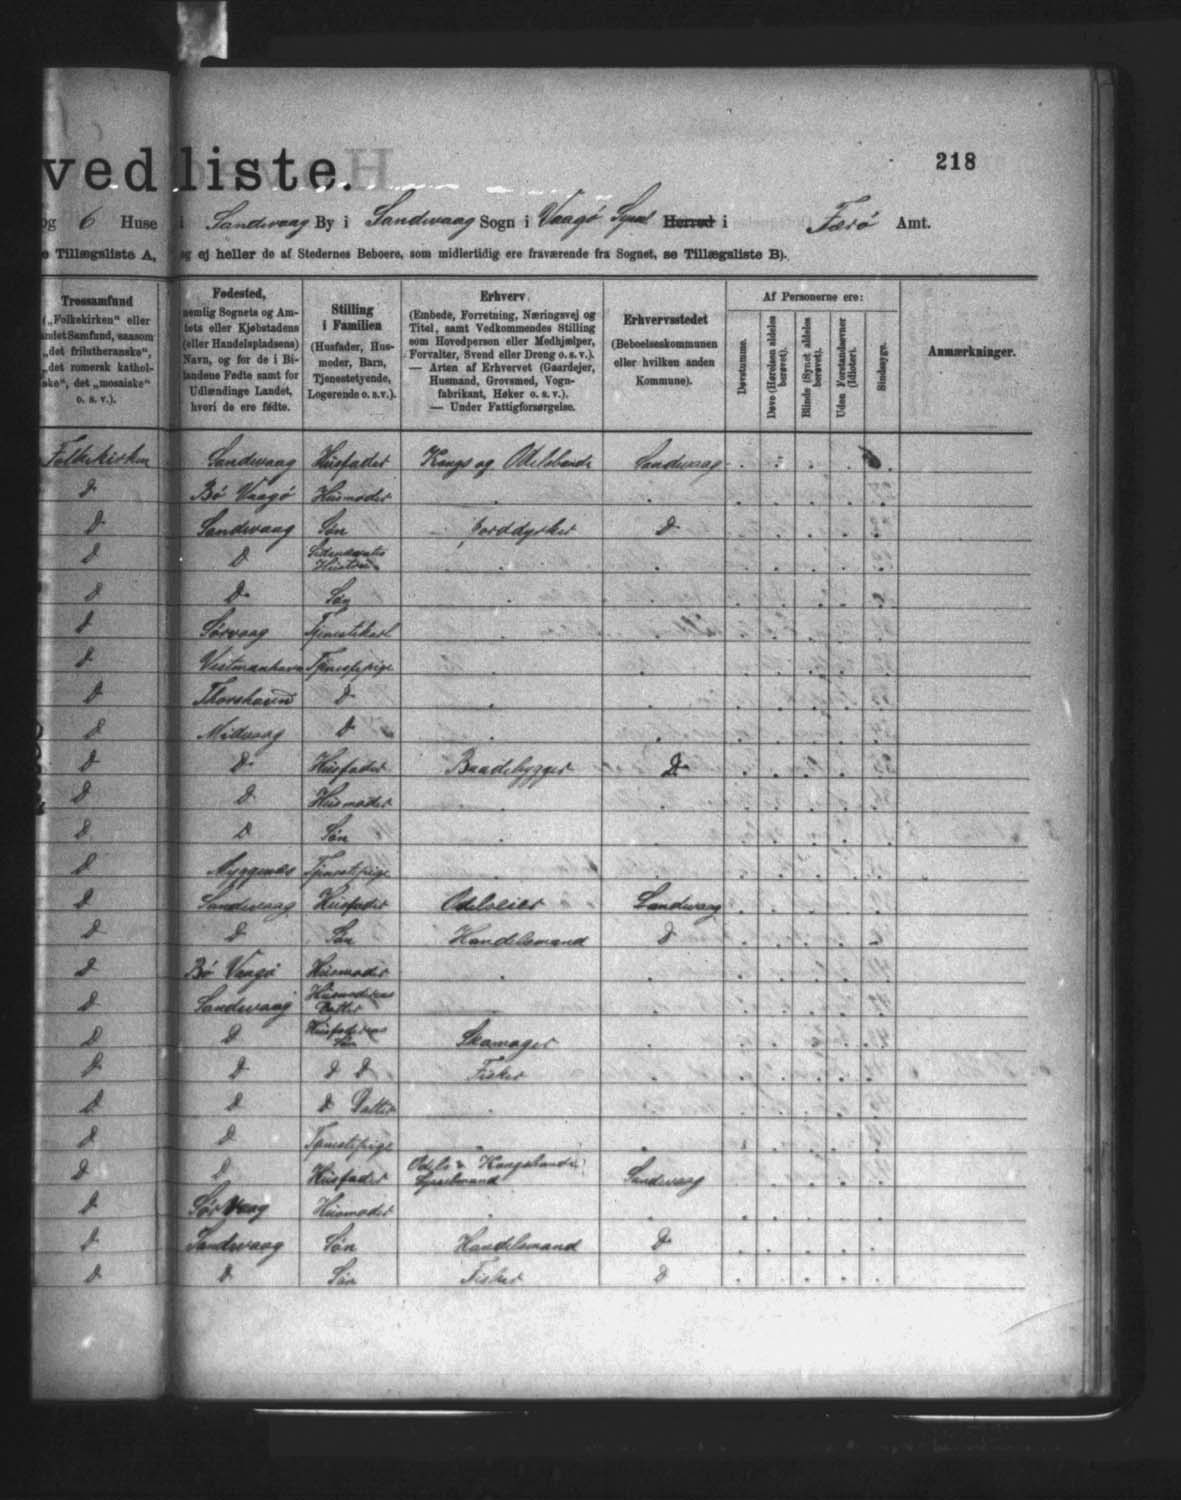 vedliste.
218
og 6 Huse i Sandevaag By i Sandevaag Sogn i Vaagø Syssel Herred i Færø Amt.
e Tillægsliste A, og ej heller de af Stedernes Beboere, som midlertidig ere fraværende fra Sognet, se Tillægsliste B).
Trossamfund
(„Folkekirken“ eller
andet Samfund, saasom
„det frilutheranske“,
„det romersk kathol-
ske“, det „mosaiske“
o. s. v.).
Fødested,
nemlig Sognets og Am-
tets eller Kjøbstadens
(eller Handelspladsens)
Navn, og for de i Bi-
landene Fødte samt for
Udlændinge Landet,
hvori de ere fødte.
Stilling
i Familien
(Husfader, Hus-
moder, Barn,
Tjenestetyende,
Logerende o. s. v.).
Erhverv.
(Embede, Forretning, Næringsvej og
Titel, samt Vedkommendes Stilling
som Hovedperson eller Medhjælper,
Forvalter, Svend eller Dreng o. s. v.).
— Arten af Erhvervet (Gaardejer,
Husmand, Grovsmed, Vogn-
fabrikant, Høker o. s. v.).
— Under Fattigforsørgelse.
Erhvervsstedet
(Beboelseskommunen
eller hvilken anden
Kommune).
Af Personerne ere:
Døvstumme.
Døve (Hørelsen aldeles
berøvet).
Blinde (Synet aldeles
berøvet).
Uden Forstandsevner
(Idioter).
Sindssyge.
Anmærkninger.
Folkekirken Sandevaag Husfader Kongs og Odelsbonde Sandevaag
D Bø Vaagø Husmoder
D Sandevaag Søn Jorddyrker D
D D Hustru
D D Søn
D Sørvaag Tjenestekarl
D Vestmanhavn Tjenestepige
D Thorshavn D
D Midvaag D
D D Husfader Baadebygger D
D D Husmoder
D D Søn
D Myggenæs Tjenestepige
D Sandevaag Husfader Odelseier Sandevaag
D D Søn Handelsmand D
D Bø Vaagø Husmoder
D Sandevaag Husmoderens Datter
D D Husfaderens Søn Skomager
D D D D Fisker
D D D Datter
D D Tjenestepige
D D Husfader Odels & Kongsbonde Sysselmand Sandevaag
D Sørvaag Husmoder
D Sandevaag Søn Handelsmand D
D D Søn Fisker D